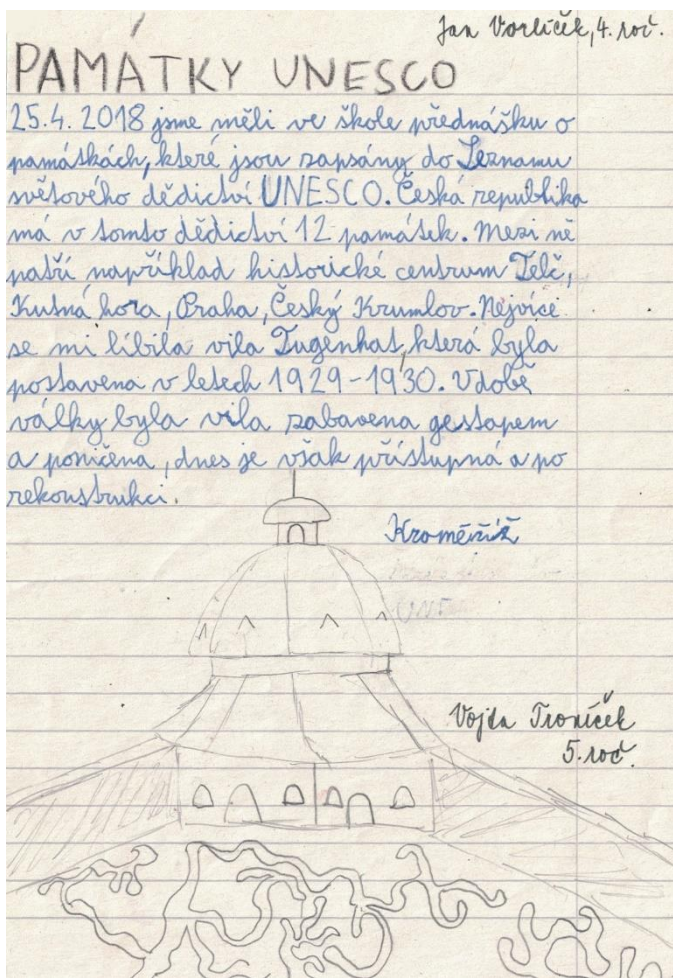 Jan Vorlíček, 4. roč.
PAMÁTKY UNESCO
25.4. 2018 jsme měli ve škole přednášku o
památkách, které jsou zapsány do Seznamu
světového dědictví UNESCO. Česká republika
má v tomto dědictví 12 památek. Mezi ně
patří například historické centrum Telč,
Kutná hora, Praha, Český Krumlov. Nejvíce
se mi líbila vila Tugenhat, která byla
postavena v letech 1929-1930. V době
války byla vila zabavena gestapem
a poničena, dnes je však přístupná a po
rekonstrukci.
Kroměříž
Vojta Troníček
5. roč.